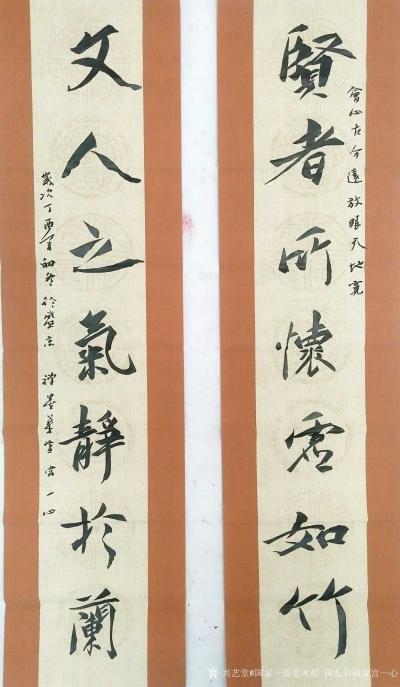 賢者所懷虛如竹
會心古今遠放眼天地寬
文人之氣靜於蘭
歲次丁酉年初冬於盛京 禪墨草堂 宮一心
兴艺堂@国家一级美术师 国礼书画家宫一心